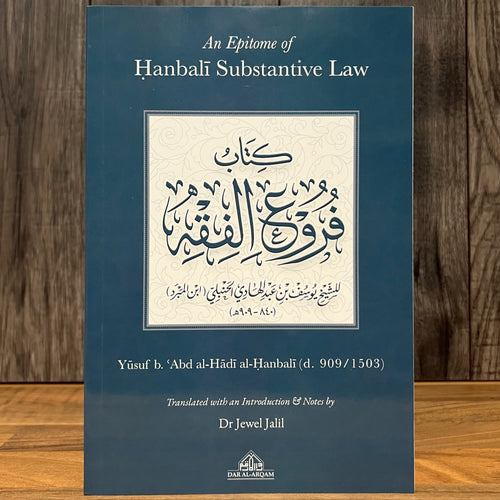 An Epitome of
Ḥanbalī Substantive Law
كِتَابُ
فُرُوعِ الفِقْهِ
للشيخ يُوسُف بن عَبْد الهَادِي الحَنْبَلِيّ (ابن المَبْرَد)
(٨٤٠-٩٠٩هـ)
Yūsuf b. ʿAbd al-Hādī al-Ḥanbalī (d. 909/1503)
Translated with an Introduction & Notes by
Dr Jewel Jalil
DAR AL-ARQAM